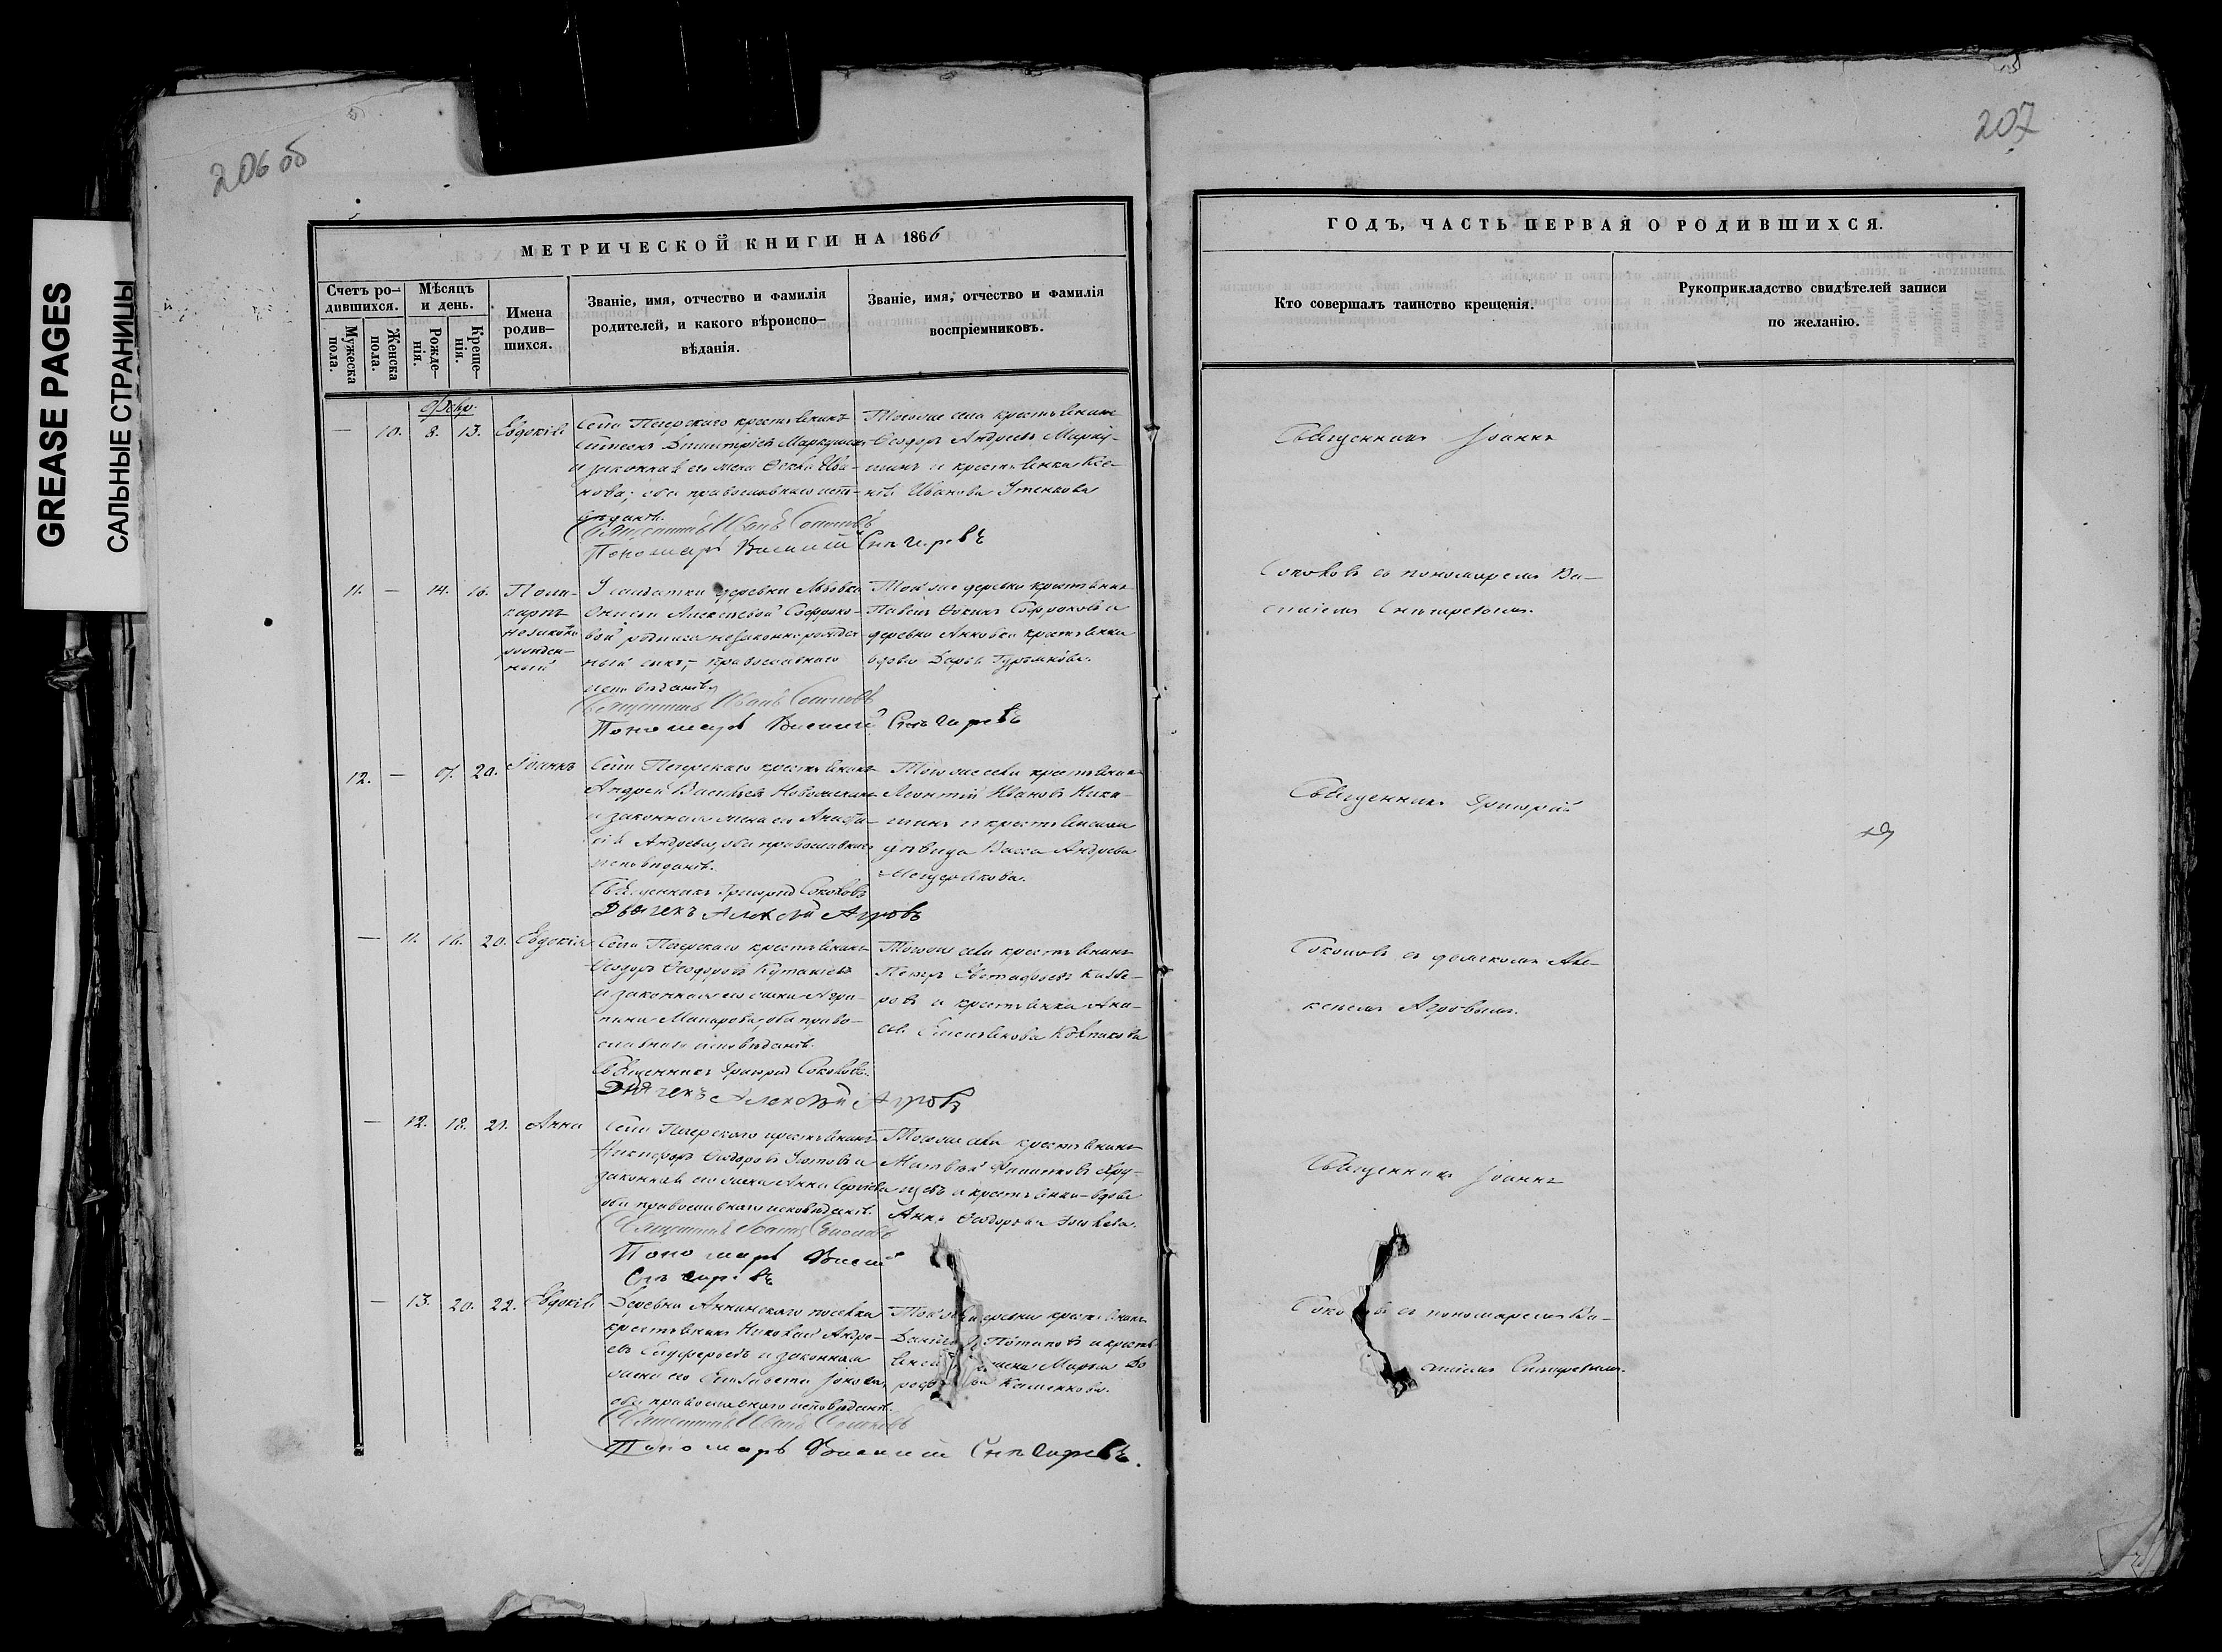 GREASE PAGES
САЛЬНЫЕ СТРАНИЦЫ
206 об
МЕТРИЧЕСКОЙ КНИГИ НА 1866
Счетъ ро-
дившихся.
Мужеска
пола.
Женска
пола.
Мѣсяцъ
и день.
Рожде-
нія.
Креще-
нія.
Имена
родив-
шихся.
Званіе, имя, отчество и фамилія
родителей, и какого вѣроиспо-
вѣданія.
Званіе, имя, отчество и фамилія
воспріемниковъ.
Февр.
— 10. 8. 13. Евдокія
Села Пегерскаго крестьянинъ
Дмитріевъ
и законная его жена Ива-
нова; оба православнаго испо-
вѣданія.
Священникъ Иванъ Соколовъ
Пономарь Василій Снѣгиревъ
Тогоже села крестьянинъ
Ѳеодоръ Андреевъ Марку-
шинъ и крестьянка Ксе-
нія Иванова
11. — 14. 16. Поли-
карпъ
незаконно
рожден-
ный
У солдатки деревни Львовки
Алексѣевой Софроно-
вой родился незаконнорожден-
ный сынъ, — православнаго
исповѣданія
Священникъ Иванъ Соколовъ
Пономарь Василій Снѣгиревъ
Тойже деревни крестьянинъ
Павелъ Ѳокинъ Софроновъ и
деревни Анновки крестьянка
вдова Дарія
12. — 20. Іоаннъ
Села Пегерскаго крестьянинъ
Андрей Васильевъ
и законная жена его Анаста-
сія Андреева, оба православнаго
исповѣданія.
Священникъ Григорій Соколовъ
Дьячекъ Алексѣй Агровъ
Тогоже села крестьянинъ
Леонтій Ивановъ Ники-
шинъ и крестьянская
дѣвица Васса Андреева
Мещерякова.
— 11. 16. 20. Евдокія
Села Пегерскаго крестьянинъ
Ѳеодоръ Ѳеодоровъ
и законная его жена Агри-
пина Макарова, оба право-
славнаго исповѣданія.
Священникъ Григорій Соколовъ.
Дьячекъ Алексѣй Агровъ
Тогоже села крестьянинъ
Петръ
и крестьянка Ани-
сія
— 12. 18. 21. Анна
Села Пегерскаго крестьянинъ
Никифоръ Ѳеодоровъ
законная его жена Анна Сергіева
оба православнаго исповѣданія.
Священникъ Іоаннъ Соколовъ
Пономарь Василій
Снѣгиревъ
Тогоже села крестьянинъ
Матвѣй Филипповъ Хру-
щевъ и крестьянка-вдова
Анна Ѳеодорова
— 13. 20. 22. Евдокія
Деревни Аннинскаго поселка
крестьянинъ Николай Андре-
евъ и законная
жена его Елизавета
оба православнаго исповѣданія.
Священникъ Иванъ Соколовъ
Пономарь Василій Снѣгиревъ.
деревни крестьянинъ
Потаповъ и кресть-
жена Марѳа До-
Каменкова.
207
ГОДЪ, ЧАСТЬ ПЕРВАЯ О РОДИВШИХСЯ.
Кто совершалъ таинство крещенія.
Рукоприкладство свидѣтелей записи
по желанію.
Священникъ Іоаннъ
Соколовъ съ пономаремъ Ва-
силіемъ Снѣгиревымъ.
Священникъ Григорій
Соколовъ съ дьячкомъ Але-
ксѣемъ Агровымъ.
Священникъ Іоаннъ
Соколовъ съ пономаремъ Ва-
силіемъ Снѣгиревымъ.